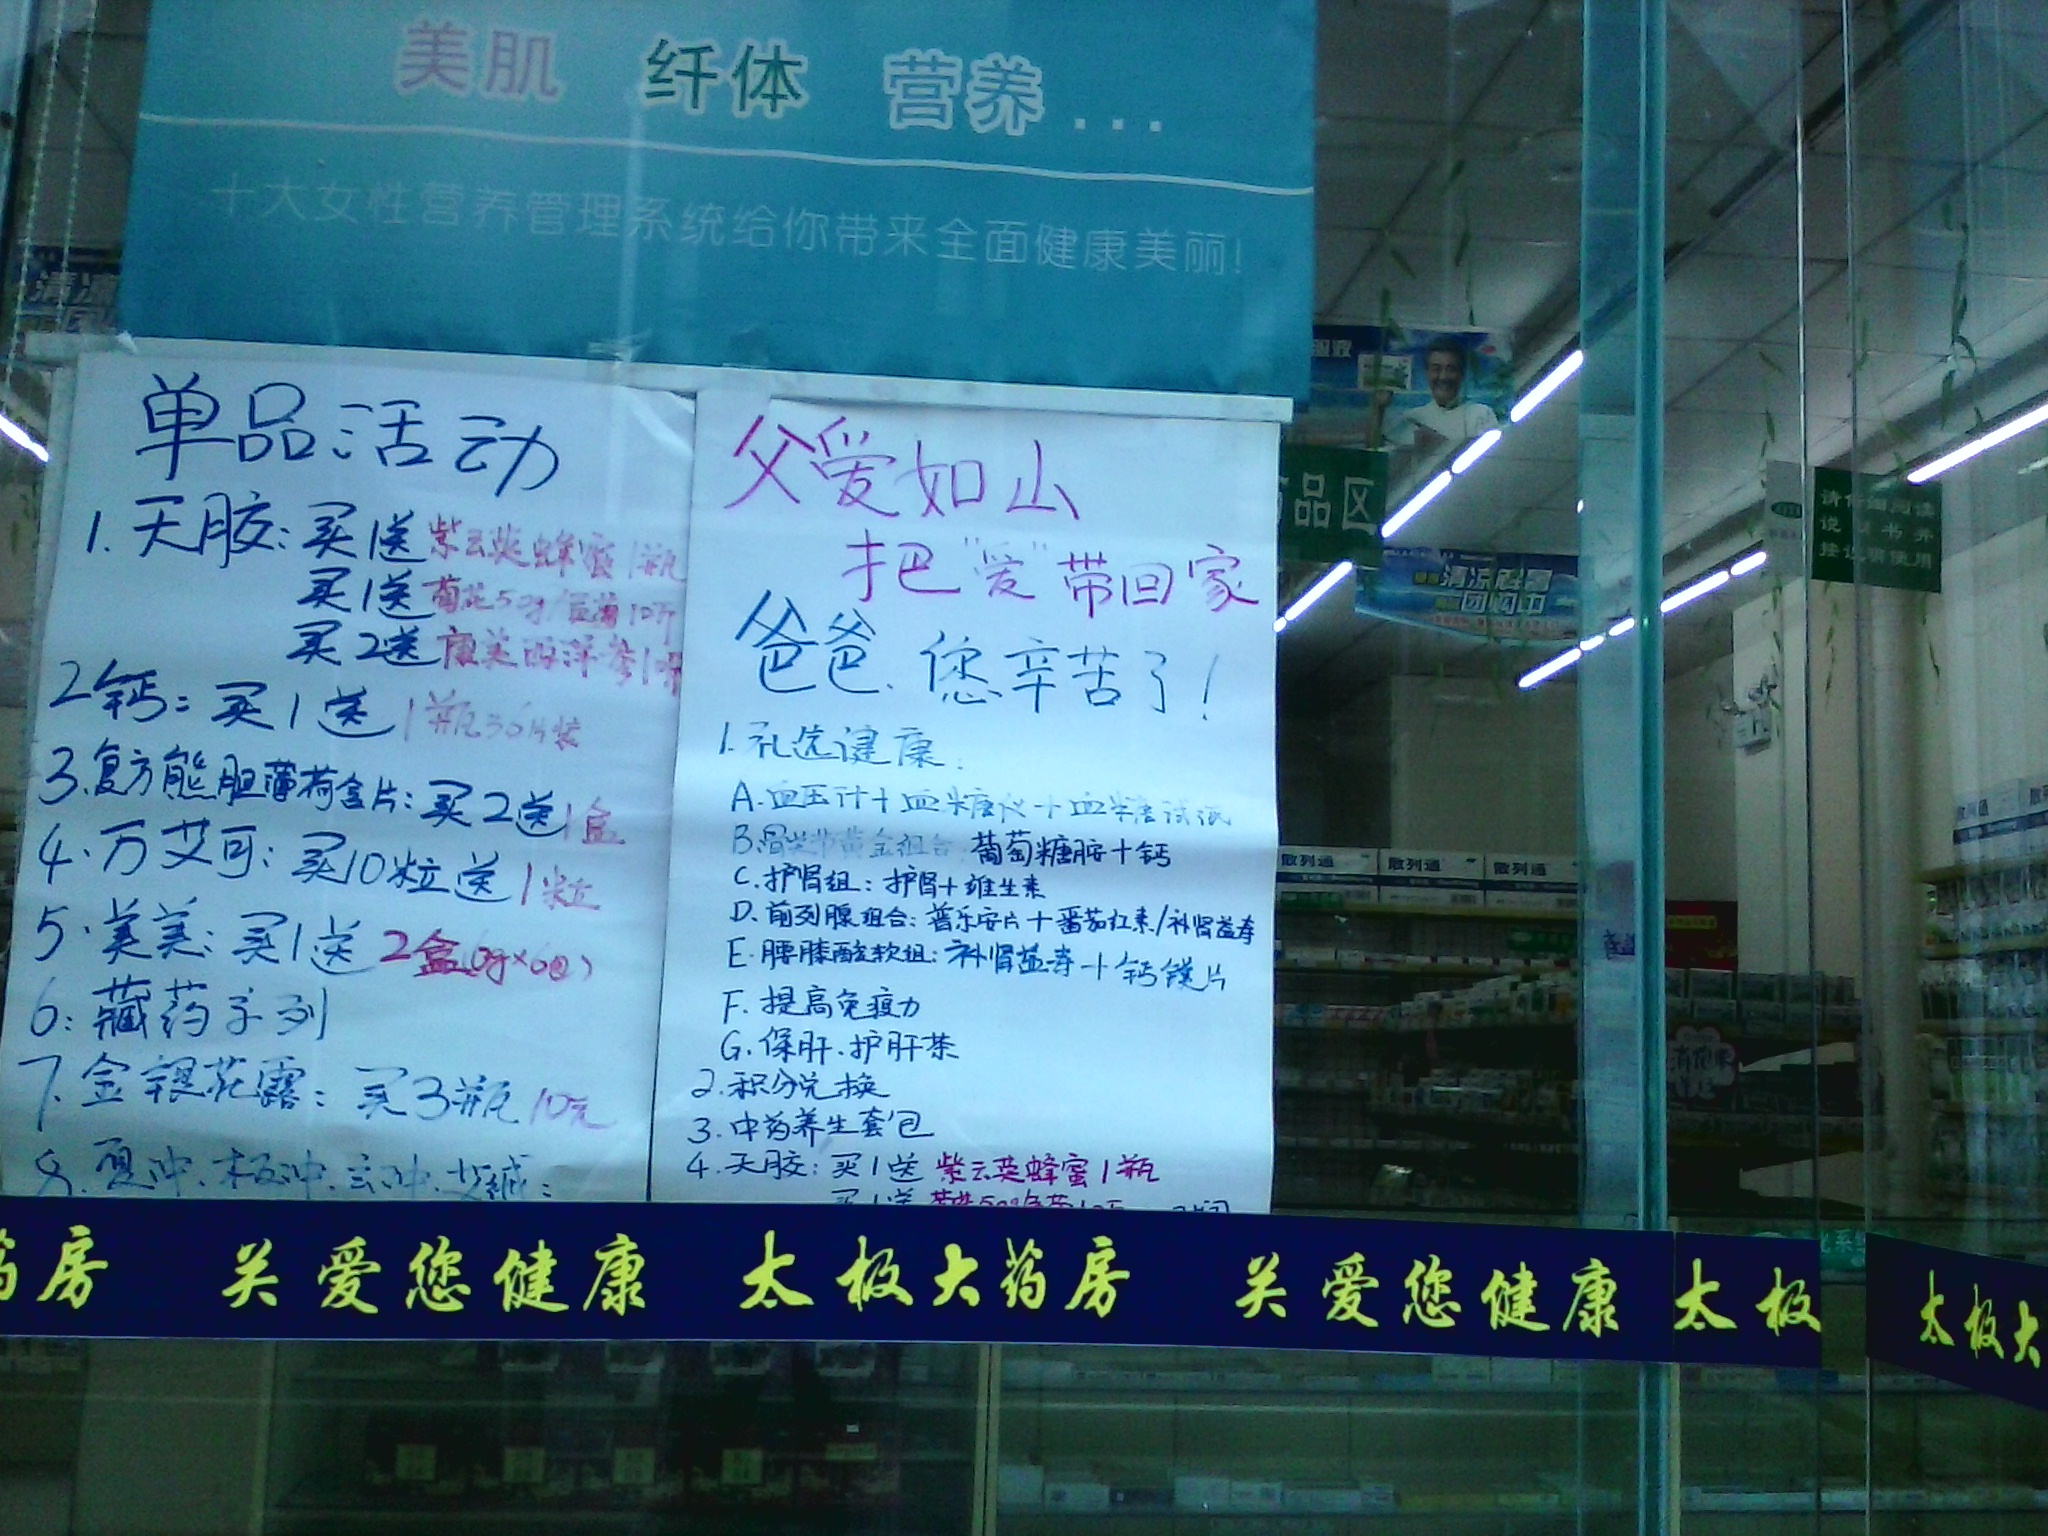 美肌 纤体 营养...
十大女性营养管理系统给你带来全面健康美丽!
单品活动
1.天胶:买1送紫云英蜂蜜1瓶
买1送菊花50g/
买2送康美西洋参1
2钙:买1送1瓶36片装
3.复方熊胆薄荷含片:买2送1盒
4.万艾可:买10粒送1粒
5.美美:买1送2盒
6:藏药系列
7.金银花露:买3瓶10元
8.夏冲.板冲.
父爱如山
把"爱"带回家
爸爸.您辛苦了!
1.礼选健康:
A.血压计+血糖仪+血糖试纸
B.骨关节黄金组合:葡萄糖胺+钙
C.护肾组:护肾+维生素
D.前列腺组合:普乐安片+番茄红素/补肾益寿
E.腰膝酸软组:补肾益寿+钙镁片
F.提高免疫力
G.保肝.护肝茶
2.积分兑换
3.中药养生套包
4.天胶:买1送紫云英蜂蜜1瓶
买1送
药房 关爱您健康 太极大药房 关爱您健康 太极
太极大
品区
清凉解暑
团购中
请仔细阅读
说明书并
按说明使用
散列通 散列通 散列通
散列通